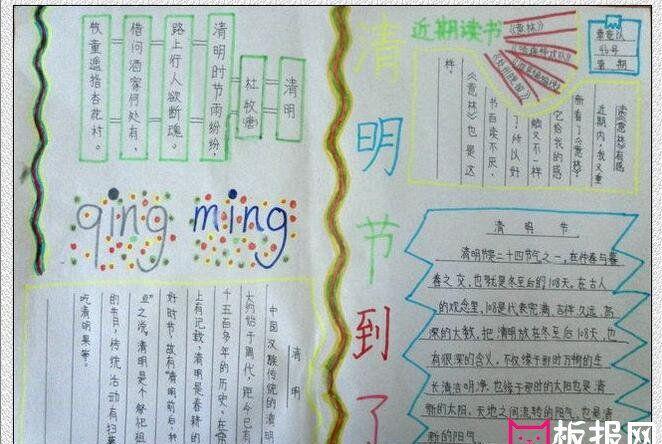 清明
杜牧(唐)
清明时节雨纷纷,
路上行人欲断魂。
借问酒家何处有,
牧童遥指杏花村。
qing ming
清明
中国汉族传统的清明
大约始于周代,距今已有
十五百多年的历史。在
上有记载,清明是春耕的
好时节,故有“清明前后,种
豆”之说。清明是个祭祀祖
的节日,传统活动有扫墓
吃清明果等。
清明节到了
近期读书
《意林》
读《意林》有感
近期内,我又重
新看了《意林》
它给我的感
触又不一样
了,所以好
书百读不厌,
《意林》也是这
样
清明节
清明是二十四节气之一,在仲春与暮
春之交,也就是冬至后的108天,在古人
的观念里,108是代表完满、吉祥、久远、高
深的大数,把清明放在冬至后108天,也
有很深的含义,不仅缘于那时万物的生
长清洁明净,也缘于那时的太阳也是清
新的太阳,天地之间流转的阳气,也是清
新的阳气。
板报网